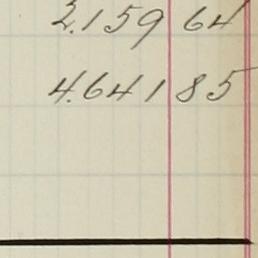 2.159 64
4.641 85